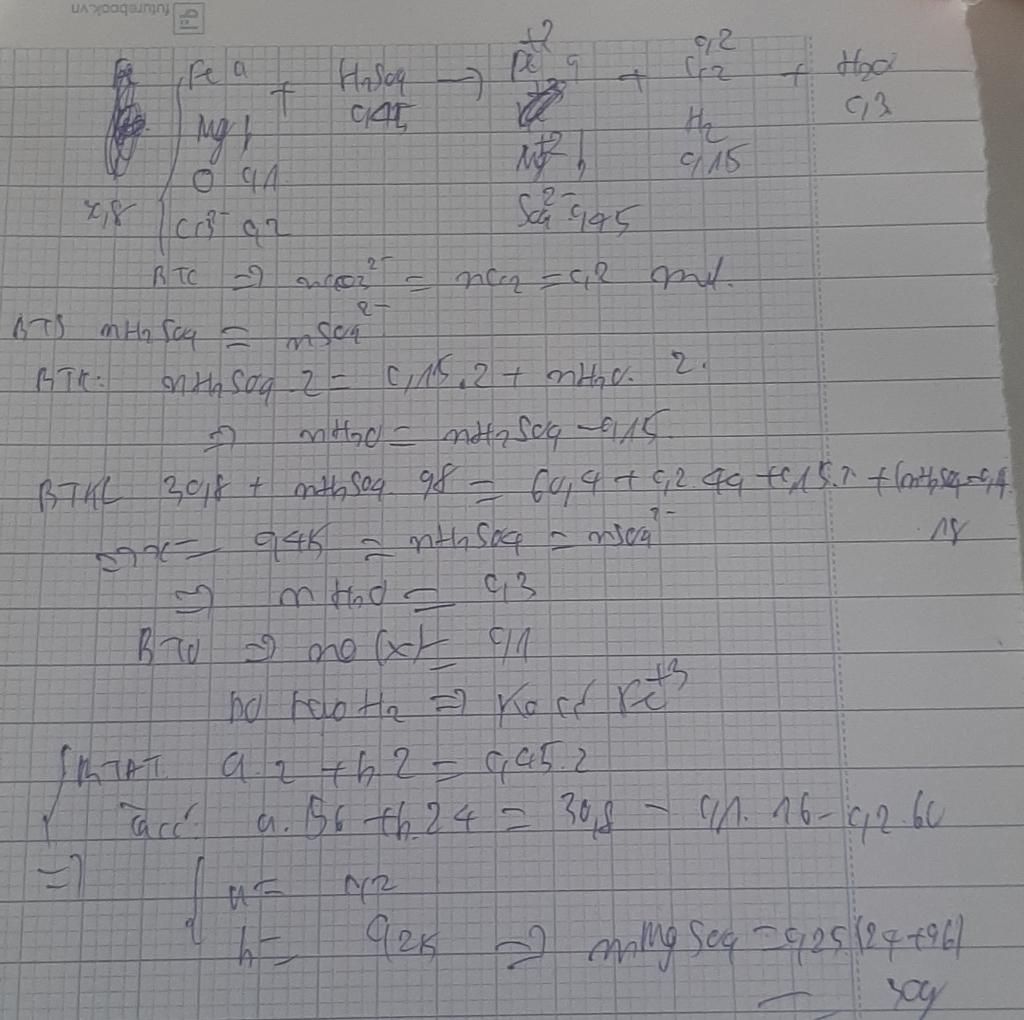 futurebook.vn
Fe a + H2SO4 → Fe+2 a + CO2 0,2 + H2O
Mg b 0,45 Mg+2 b H2 0,15 0,3
O 0,1
30,8 CO3 2- 0,2 SO4 2- 0,45
BTC ⇒ nCO3 2- = nCO2 = 0,2 mol.
BTS nH2SO4 = nSO4 2-
BTH: nH2SO4.2 = 0,15.2 + nH2O.2.
⇒ nH2O = nH2SO4 - 0,15.
BTKL 30,8 + nH2SO4.98 = 60,4 + 0,2.44 + 0,15.2 + (nH2SO4 - 0,15).
18
=> x = 0,45 = nH2SO4 = nSO4 2-
⇒ nH2O = 0,3
BTO ⇒ nO (x) = 0,1
Do tạo H2 ⇒ Ko có Fe+3
BTĐT a.2 + b.2 = 0,45.2
Ta có: a.56 + b.24 = 30,8 - 0,1.16 - 0,2.60
⇒ a = 0,2
b = 0,25 ⇒ mMgSO4 = 0,25(24+96)
= 30g